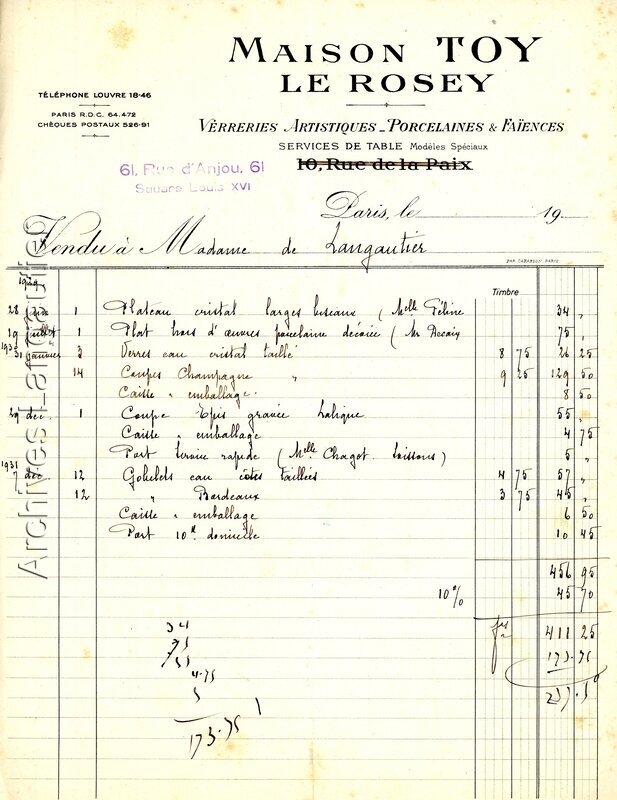 MAISON TOY
LE ROSEY
TÉLÉPHONE LOUVRE 18-46
PARIS R.D.C. 64.472
CHÈQUES POSTAUX 526-91
VERRERIES ARTISTIQUES _ PORCELAINES & FAÏENCES
SERVICES DE TABLE Modèles Spéciaux
10, Rue de la Paix
61, Rue d'Anjou, 61
Square Louis XVI
Paris, le 19
Vendu à Madame de Langautier
PAR. CABASSON. PARIS
Timbre
28 1 Plateau cristal larges biseaux (Melle Féline 34 "
19 juillet 1 Plat hors d'œuvres porcelaine décorée (Mr Decaix 75 "
31 janvier 3 Verres eau cristal taillé 8 75 26 25
14 Coupes Champagne " 9 25 129 50
Caisse & emballage 8 50
29 déc. 1 Coupe Epis gravée Lalique 55 "
Caisse & emballage 4 75
Port terrain rapide (Melle Chagot Soissons) 5 "
1931
7 déc 12 Gobelets eau côtes taillées 4 75 57 "
12 " Bordeaux 3 75 45 "
Caisse & emballage 6 50
Port 10k domicile 10 45
456 95
10% 45 70
frs 411 25
173.75
237.50
34
75
55
4.75
5
173.75
Archives Languedoc